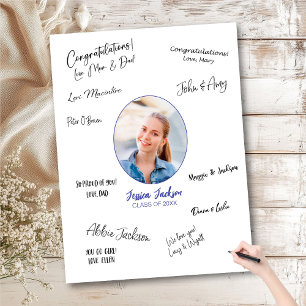 Congratulations!
Love Mom & Dad
Congratulations!
Love, Mary
Lori Macintire
John & Amy
Peter O'Brien
So proud of you!
Love, Dad
Maggie & Jackson
Jessica Jackson
CLASS OF 20XX
Diana & Luka
Abbie Jackson
We love you!
Lucy & Wyatt
YOU GO GIRL!
LOVE, ELLEN